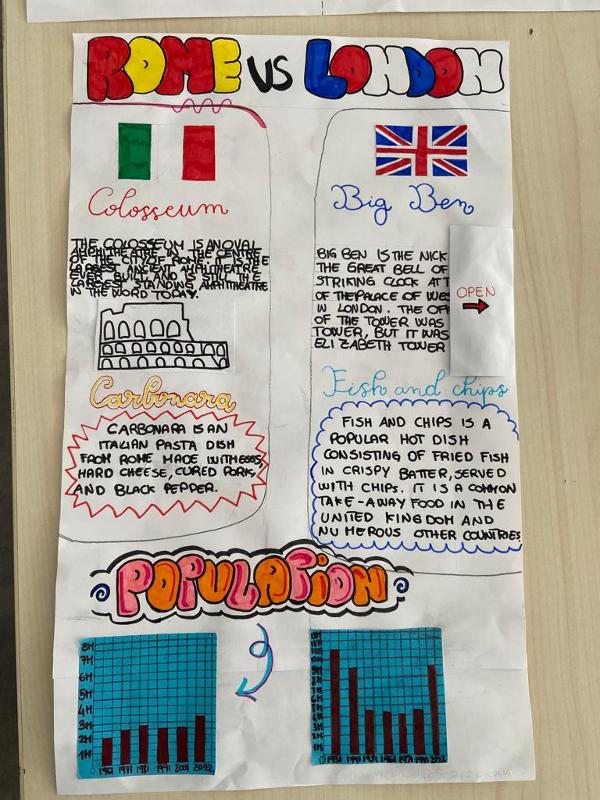 ROME VS LONDON
Colosseum
THE COLOSSEUM IS AN OVAL
AMPHITHEATRE IN THE CENTRE
OF THE CITY OF ROME. IT IS THE
LARGEST ANCIENT AMPHITHEATRE
EVER BUILT, AND IS STILL THE
LARGEST STANDING AMPHITHEATRE
IN THE WORD TODAY.
Carbonara
CARBONARA IS AN
ITALIAN PASTA DISH
FROM ROME MADE WITH EGGS,
HARD CHEESE, CURED PORK,
AND BLACK PEPPER.
Big Ben
BIG BEN IS THE NICK
THE GREAT BELL OF
STRIKING CLOCK AT T
OF THE PALACE OF WES
IN LONDON. THE OFF
OF THE TOWER WAS
TOWER, BUT IT WAS
ELIZABETH TOWER
OPEN
Fish and chips
FISH AND CHIPS IS A
POPULAR HOT DISH
CONSISTING OF FRIED FISH
IN CRISPY BATTER, SERVED
WITH CHIPS. IT IS A COMMON
TAKE-AWAY FOOD IN THE
UNITED KINGDOM AND
NUMEROUS OTHER COUNTRIES
POPULATION
8M
7M
6M
5M
4M
3M
2M
1M
0 1961 1971 1981 1991 2001 2022
1M
1931 1961 1971